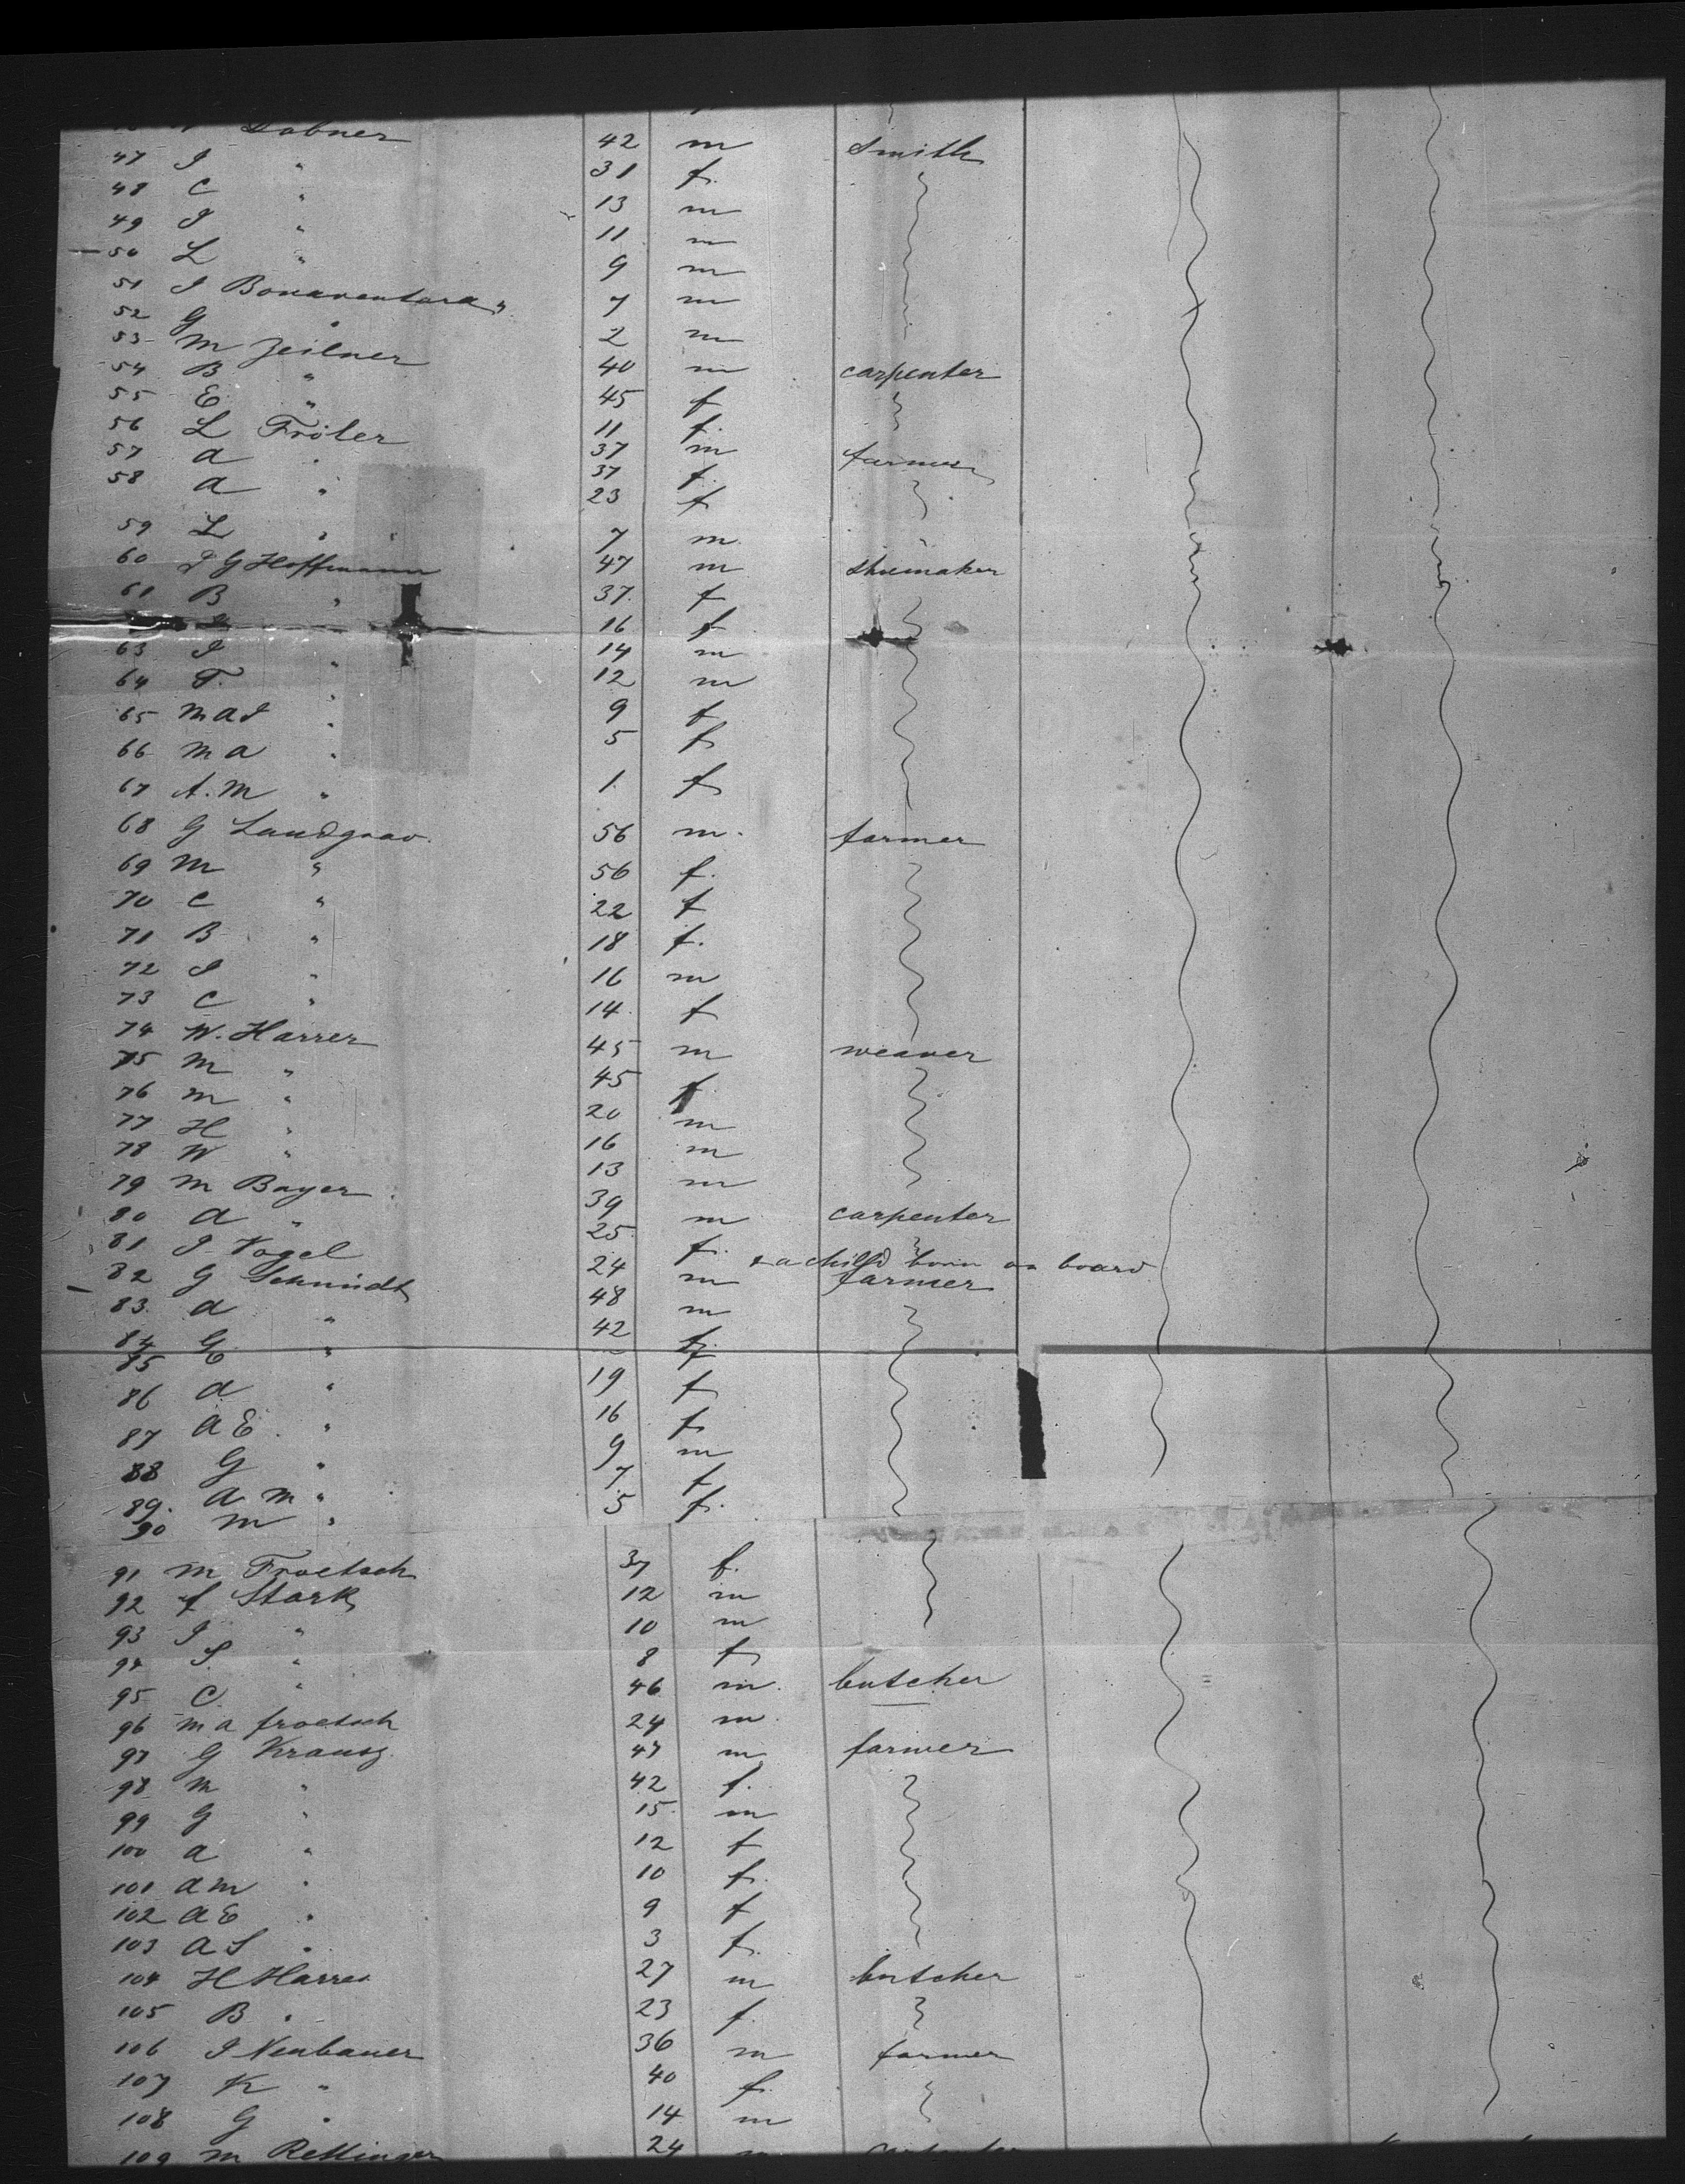 Dobner 42 m Smith
47 J " 31 f.
48 C " 13 m
49 J " 11 m
50 L " 9 m
51 J Bonaventura " 7 m
52 G " 2 m
53 M Zeilner 40 m carpenter
54 B " 45 f
55 E " 11 f.
56 L Fröler 37 m farmer
57 A " 37 f.
58 A " 23 f
59 L " 7 m.
60 J G Hoffmann 47 m shumaker
61 B " 37. f
16 f
63 J " 14 m
64 F. " 12 m
65 M A J " 9 f
66 M A " 5 f
67 A. M " 1. f
68 G Landgrav. 56 m. farmer
69 M " 56 f.
70 C " 22 f
71 B " 18 f.
72 J " 16 m
73 C " 14 f
74 W. Harrer 45 m weaver
75 M " 45 f.
76 M " 20 m
77 H " 16 m
78 W " 13 m
79 M Bayer 39 m carpenter
80 A " 25 f. & a child born on board
81 J Vogel 24 m farmer
82 G Schmidt 48 m
83. A " 42 f.
84 G " f
85
86 A " 19 f
87 A E. " 16 f
88 G " 9 m
89. A M " 7 f
90 M " 5 f.
91 M Froetsch 37 f.
92 f Stark 12 m
93 J " 10 m
94 S. " 8 f
95 C. " 46 m. butcher
96 M A froetsch 24 m
97 G Krausz 47 m farmer
98 M " 42 f.
99 G " 15. m
100 A " 12 f
101 A M " 10 f.
102 A E " 9 f
103 A S " 3 f.
104 H Harrer 27 m butcher
105 B " 23 f.
106 J Neubauer 36 m farmer
107 K " 40 f.
108 G " 14 m
109 M Rettinger 24